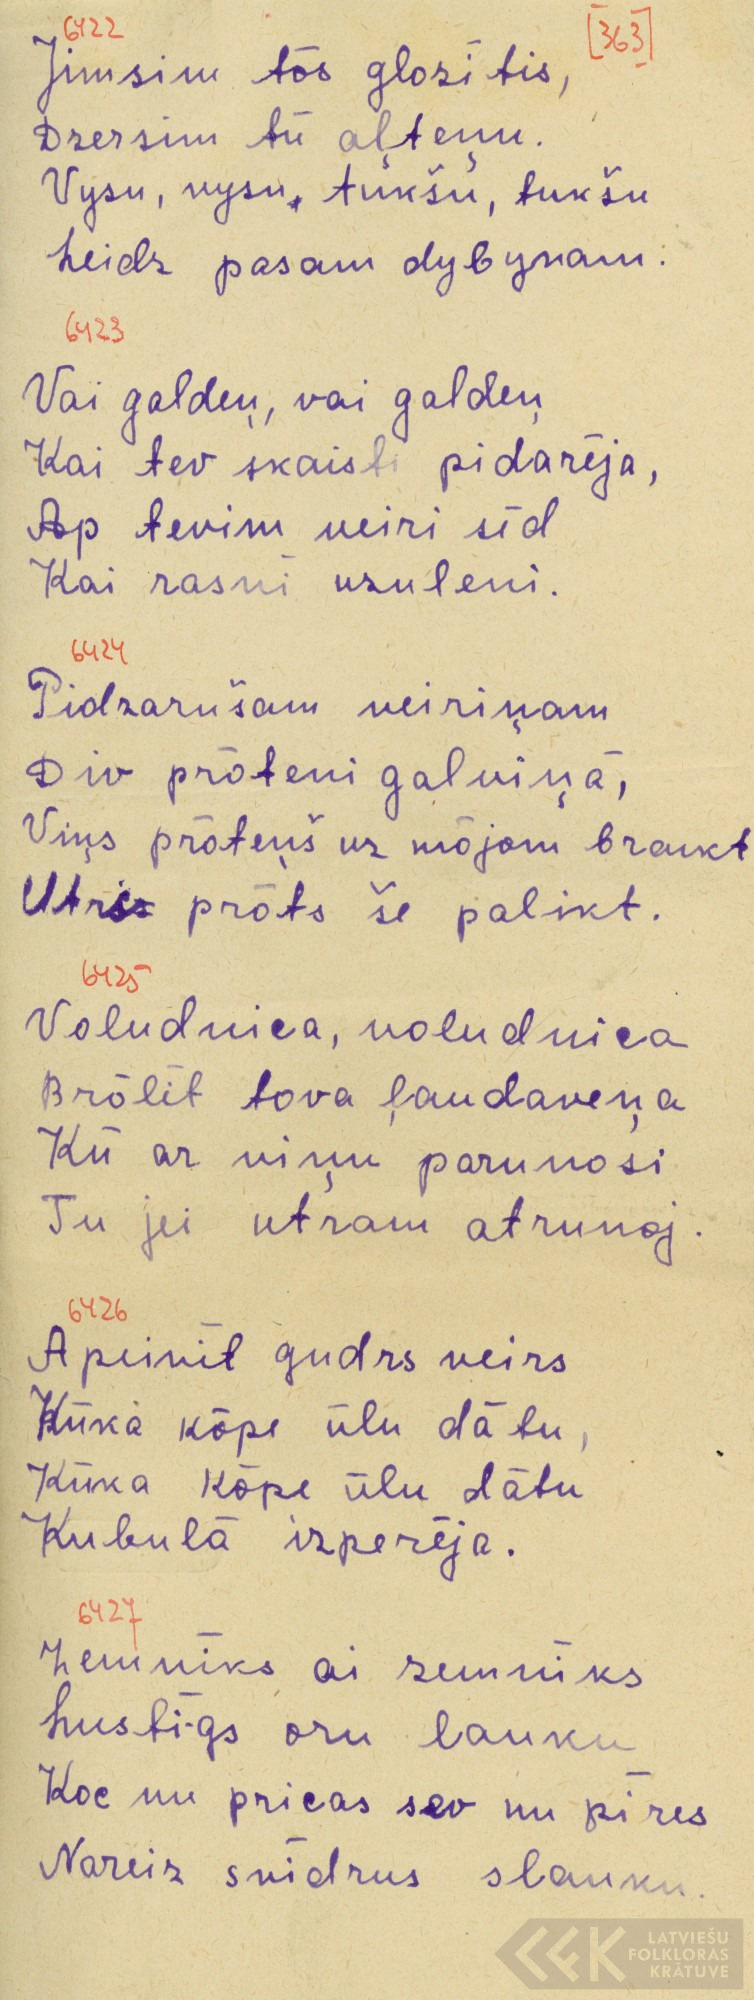 6422 [363]
Jimsim tōs glozītis,
Dzersim tū aļteņu.
Vysu, vysu, tukšu, tukšu
Leidz pasam dybynam.
6423
Vai galdeņ, vai galdeņ
Kai tev skaisti pidarēja,
Ap tevim veiri sīd
Kai rasnī uzuleni.
6424
Pidzarušam veiriņam
Div prōteni galviņā,
Viņs prōteņš uz mōjom braukt
Utris prōts še palikt.
6425
Voludnica, voludnica
Brōlīt tova ļaudaveņa
Kū ar viņu parunosi
Tu jei utram atrunoj.
6426
Apeinīt gudrs veirs
Kūka kōpe ūlu dātu,
Kūka kōpe ūlu dātu
Kubulā izperēja.
6427
Zemnīks ai zemnīks
Lustīgs oru lauku
Koc nu pricas sev nu pīres
Nareiz svīdrus slauku.
LATVIEŠU
FOLKLORAS
KRĀTUVE